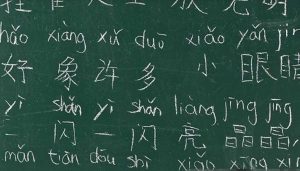 hǎo xiàng xǔ duō xiǎo yǎn
好 象 许 多 小 眼 睛
yì shǎn yì shǎn liàng jīng jīng
一 闪 一 闪 亮 晶 晶
mǎn tiān dōu shì xiǎo xīng